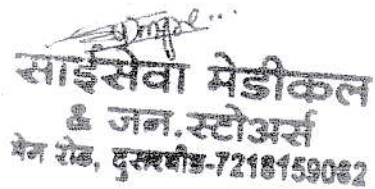 साईसेवा मेडीकल
& जन.स्टोअर्स
मेन रोड, दुसरबीड-7218159082